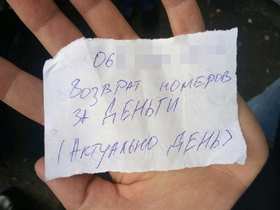 06
ВОЗВРАТ НОМЕРОВ
ЗА ДЕНЬГИ
(АКТУАЛЬНО ДЕНЬ)